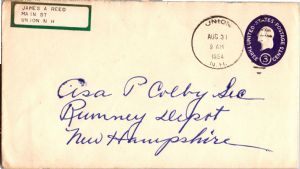 JAMES A REED
MAIN ST
UNION N H
UNION
AUG 31
9 AM
1954
N.H.
UNITED STATES POSTAGE
3
THREE CENTS
Cisa P Colby Sec
Rumney Depot
New Hampshire